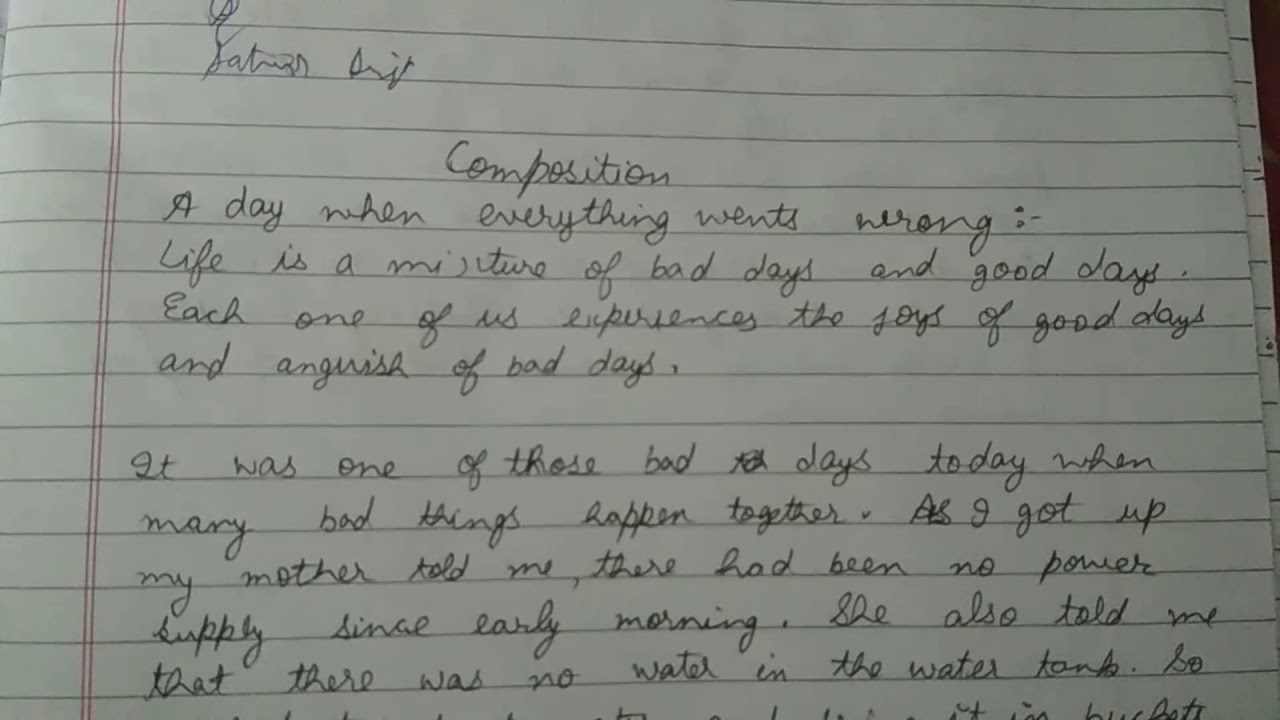 Composition
A day when everything wents wrong :-
Life is a mixture of bad days and good days.
Each one of us experiences the joys of good days
and anguish of bad days.
It was one of those bad days today when
many bad things happen together. As I got up
my mother told me, there had been no power
supply since early morning. She also told me
that there was no water in the water tank. So
it in buckets